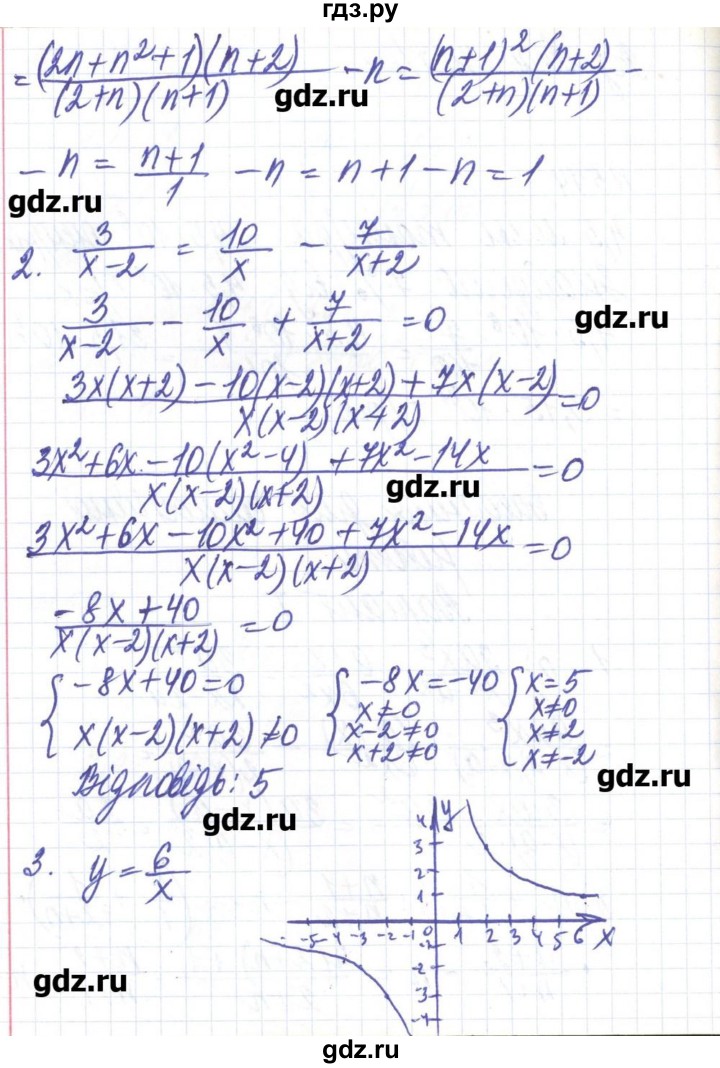 гдз.ру
= (2n+n²+1)(n+2) / (2+n)(n+1) - n = (n+1)²(n+2) / (2+n)(n+1) -
gdz.ru
- n = n+1 / 1 - n = n+1-n = 1
gdz.ru
2. 3 / x-2 = 10 / x - 7 / x+2
3 / x-2 - 10 / x + 7 / x+2 = 0
gdz.ru
3x(x+2) - 10(x-2)(x+2) + 7x(x-2) / x(x-2)(x+2) = 0
3x²+6x-10(x²-4) + 7x²-14x / x(x-2)(x+2) = 0
gdz.ru
3x²+6x-10x²+40+7x²-14x / x(x-2)(x+2) = 0
-8x+40 / x(x-2)(x+2) = 0
{ -8x+40=0 { -8x=-40 { x=5
x≠0 x≠0
x(x-2)(x+2)≠0 x-2≠0 x≠2
x+2≠0 x≠-2
Відповідь: 5
gdz.ru
gdz.ru
3. y = 6 / x
y
4
3
2
1
-5 -4 -3 -2 -1 0 1 2 3 4 5 6 x
-1
-2
-3
-4
gdz.ru
gdz.ru